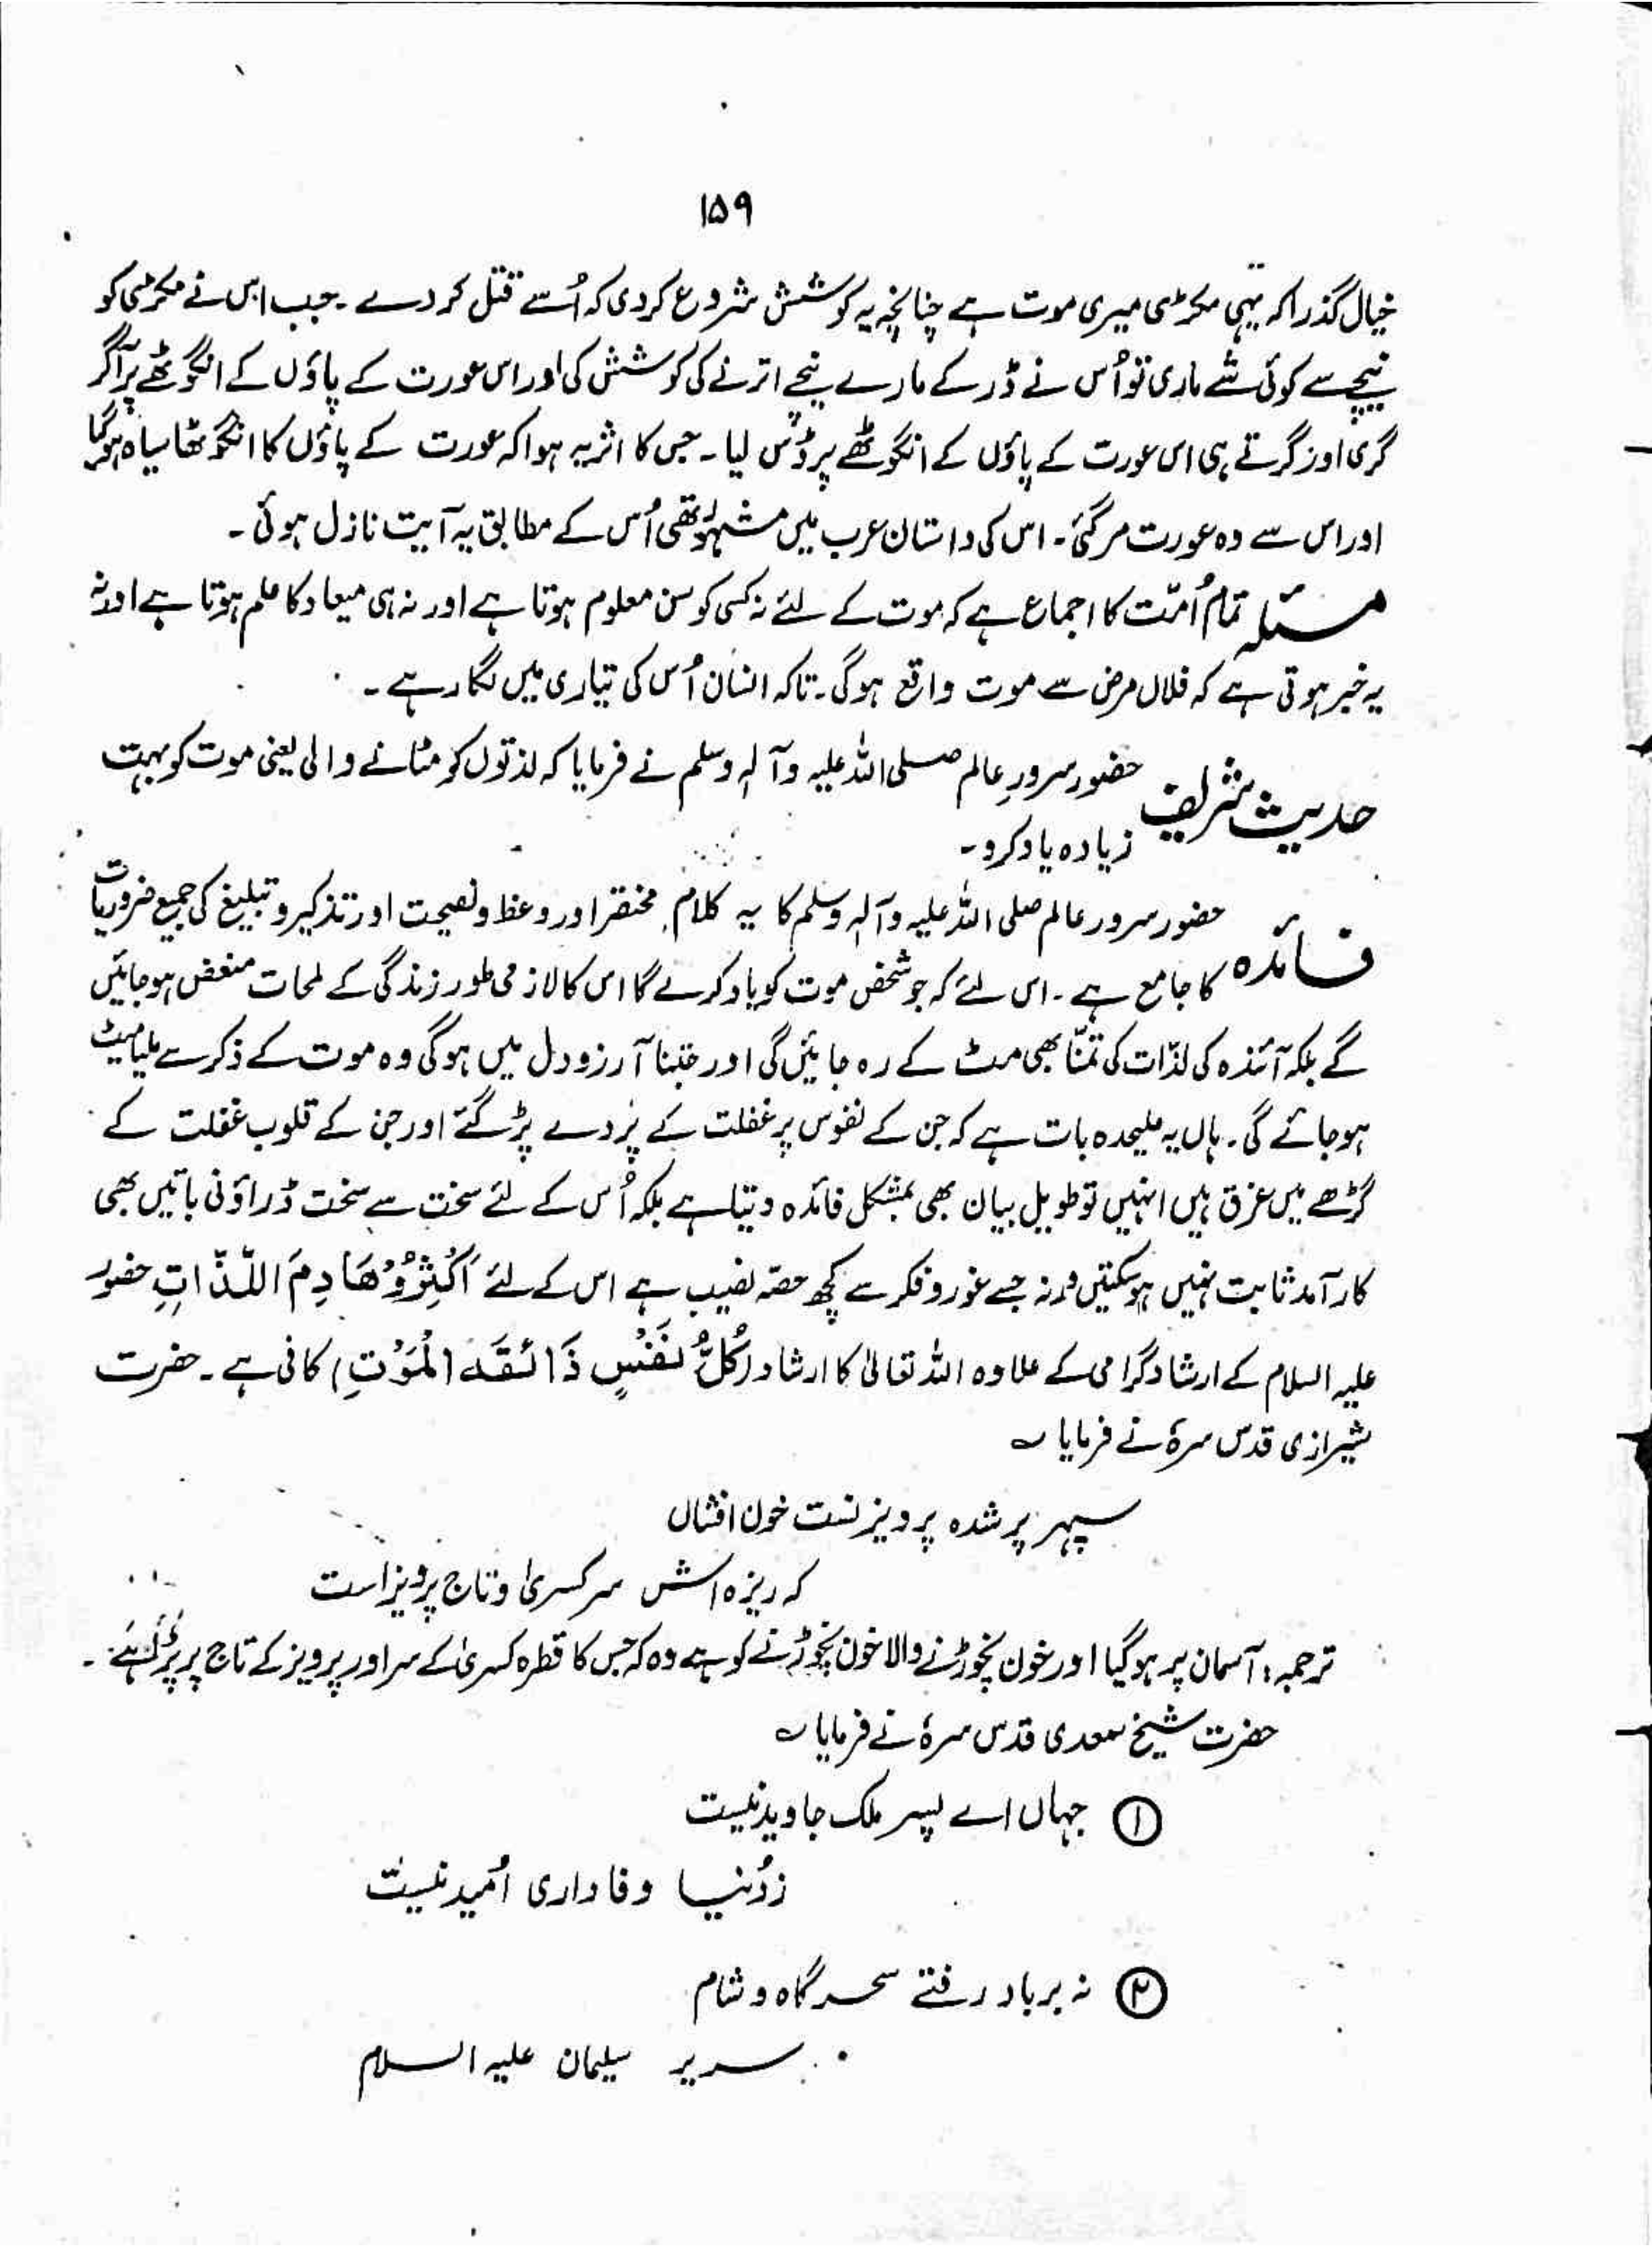 ۱۵۹
خیال گذرا کہ یہی مکڑی میری موت ہے چنانچہ یہ کوشش شروع کردی کہ اُسے قتل کر دے ۔ جب اس نے مکڑی کو
نیچے سے کوئی شے ماری تو اُس نے ڈر کے مارے نیچے اترنے کی کوشش کی اور اس عورت کے پاؤں کے انگوٹھے پر آکر
گری اور گرتے ہی اس عورت کے پاؤں کے انگوٹھے پر ڈس لیا ۔ جس کا اثر یہ ہوا کہ عورت کے پاؤں کا انگوٹھا سیاہ ہوگیا
اور اس سے وہ عورت مرگئی ۔ اس کی داستان عرب میں مشہور تھی اُس کے مطابق یہ آیت نازل ہوئی ۔
مسئلہ تمام اُمّت کا اجماع ہے کہ موت کے لئے نہ کسی کو سن معلوم ہوتا ہے اور نہ ہی میعاد کا علم ہوتا ہے اور نہ
یہ خبر ہوتی ہے کہ فلاں مرض سے موت واقع ہوگی ۔ تاکہ انسان اُس کی تیاری میں لگا رہے ۔
حدیث شریف حضور سرورِ عالم صلی اللہ علیہ وآلہٖ وسلم نے فرمایا کہ لذتوں کو مٹانے والی یعنی موت کو بہت
زیادہ یاد کرو ۔
فائدہ حضور سرور عالم صلی اللہ علیہ وآلہٖ وسلم کا یہ کلام مختصر اور وعظ و نصیحت اور تذکیر و تبلیغ کی جمیع ضروریات
کا جامع ہے ۔ اس لئے کہ جو شخص موت کو یاد کرے گا اس کا لازمی طور زندگی کے لمحات منغض ہوجائیں
گے بلکہ آئندہ کی لذّات کی تمنّا بھی مٹ کے رہ جائیں گی اور جتنا آرزو دل میں ہوگی وہ موت کے ذکر سے ملیامیٹ
ہوجائے گی ۔ ہاں یہ علیحدہ بات ہے کہ جن کے نفوس پر غفلت کے پردے پڑ گئے اور جن کے قلوب غفلت کے
گڑھے میں غرق ہیں انہیں تو طویل بیان بھی بمشکل فائدہ دیتا ہے بلکہ اُس کے لئے سخت سے سخت ڈراؤنی باتیں بھی
کار آمد ثابت نہیں ہوسکتیں ورنہ جسے غور و فکر سے کچھ حصّہ نصیب ہے اس کے لئے اَکْثِرُوْا ھَادِمَ اللَّذَّاتِ حضور
علیہ السلام کے ارشاد گرامی کے علاوہ اللہ تعالیٰ کا ارشاد (کُلُّ نَفْسٍ ذَائِقَۃُ الْمَوْتِ) کافی ہے ۔ حضرت
شیرازی قدس سرہٗ نے فرمایا ؎
سپہر پر شدہ پرویزنست خون افشاں
کہ ریزہ اش سر کسریٰ و تاج پرویز است
ترجمہ : آسمان پر ہوگیا اور خون نچوڑنے والا خون نچوڑنے کو ہے وہ کہ جس کا قطرہ کسریٰ کے سر اور پرویز کے تاج پر پڑتا ہے ۔
حضرت شیخ سعدی قدس سرہٗ نے فرمایا ؎
① جہاں اے پسر ملک جاوید نیست
ز دُنیا وفاداری اُمید نیست
② نہ برباد رفتے سحر گاہ و شام
سریر سلیمان علیہ السلام